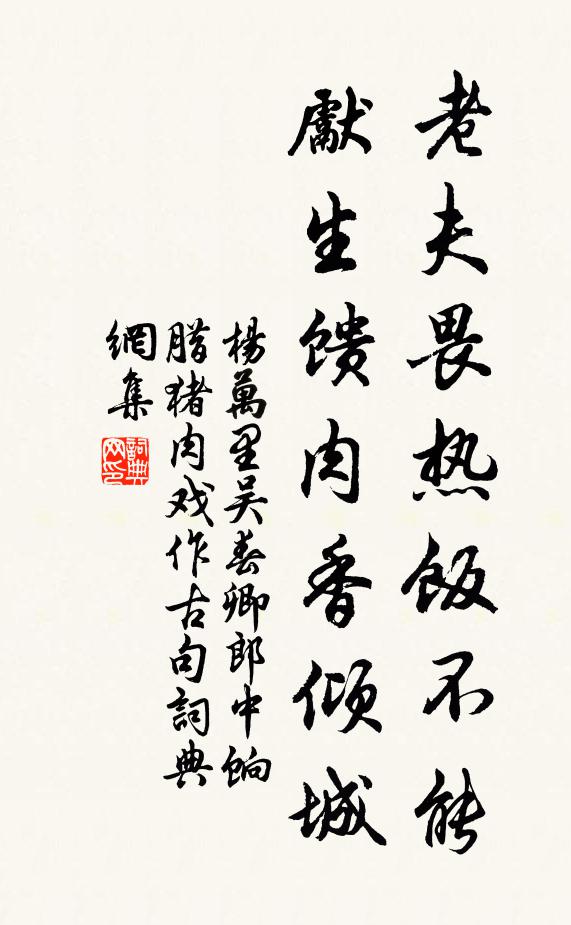 老夫畏热饭不能
獻生馈肉香倾城
楊萬里吴春卿郎中餉
腊猪肉戏作古句詞典
網集
詞典
网印